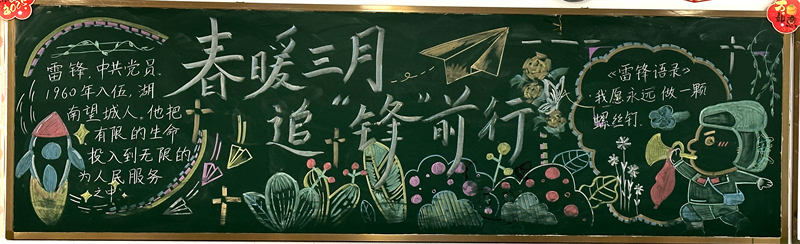 雷锋，中共党员，
1960年入伍，湖
南望城人，他把
有限的生命
投入到无限的
为人民服务
之中
春暖三月
追“锋”前行
《雷锋语录》
我愿永远做一颗
螺丝钉